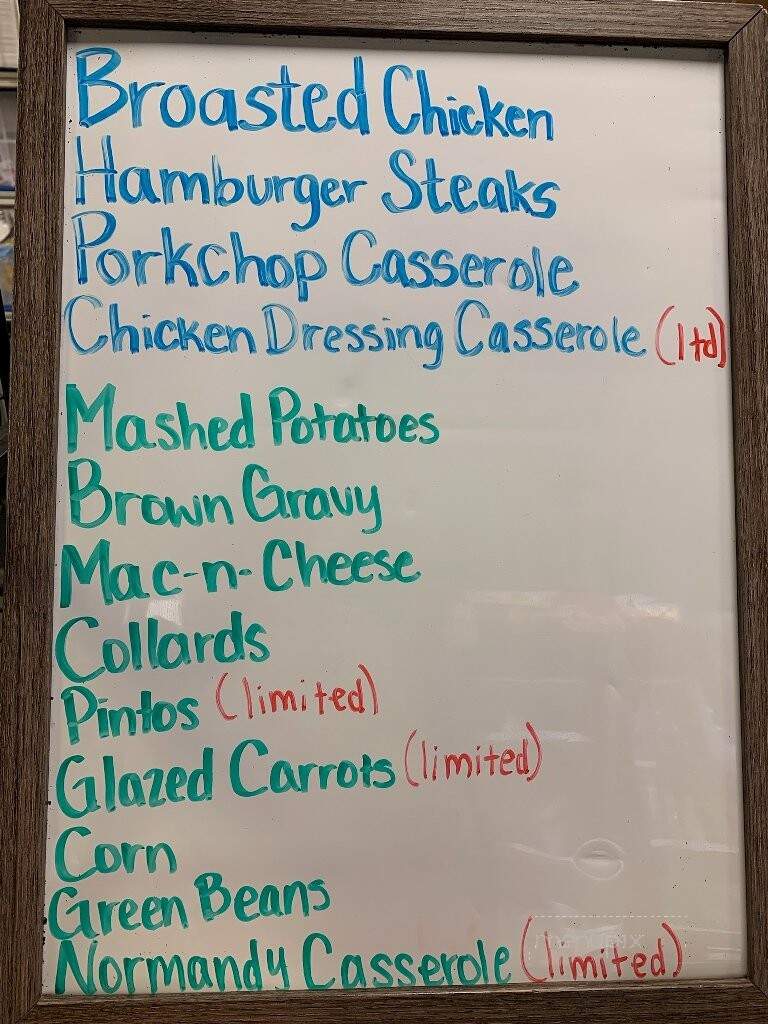 Broasted Chicken
Hamburger Steaks
Porkchop Casserole
Chicken Dressing Casserole (ltd)
Mashed Potatoes
Brown Gravy
Mac-n-Cheese
Collards
Pintos (limited)
Glazed Carrots (limited)
Corn
Green Beans
Normandy Casserole (limited)